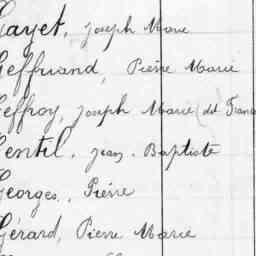 Gayet, Joseph Marie
Geffriand, Pierre Marie
Geffroy, Joseph Marie (dit Franc
Gentil, Jean-Baptiste
Georges, Pierre
Gérard, Pierre Marie